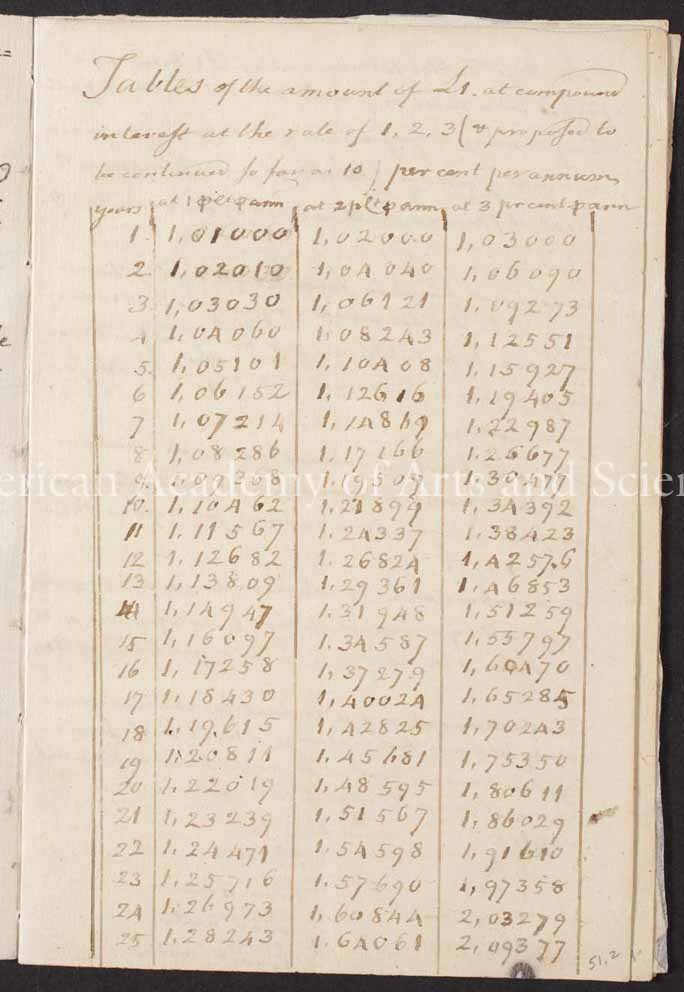 Tables of the amount of £1. at compound
interest at the rate of 1, 2, 3 (& proposed to
be continued so far as 10.) per cent per annum
years at 1 p Ct p ann at 2 p Ct p ann at 3 pr cent p ann
1. 1,01000 1,02000 1,03000
2. 1,02010 1,04040 1,06090
3. 1,03030 1,06121 1,09273
4 1,04060 1,08243 1,12551
5. 1,05101 1,10408 1,15927
6 1,06152 1,12616 1,19405
7 1,07214 1,14869 1,22987
8 1,08286 1,17166 1.26677
American Academy of Arts and Scien
9. 1,09368 1,19509 1,30477
10. 1,10462 1,21899 1,34392
11 1.11567 1.24337 1.38423
12 1.12682 1.26824 1,42576
13 1,13809 1,29361 1,46853
14 1,14947 1.31948 1,51259
15 1,16097 1.34587 1,55797
16 1,17258 1,37279 1,60470
17 1,18430 1,40024 1,65285
18 1,19.615 1,42825 1,70243
19 1,20811 1,45681 1,75350
20 1,22019 1,48595 1,80611
21 1,23239 1,51567 1,86029
22 1,24471 1.54598 1,91610
23 1,25716 1,57690 1,97358
24 1,26973 1,60844 2,03279
25 1.28243 1.64061 2,09377
51.2